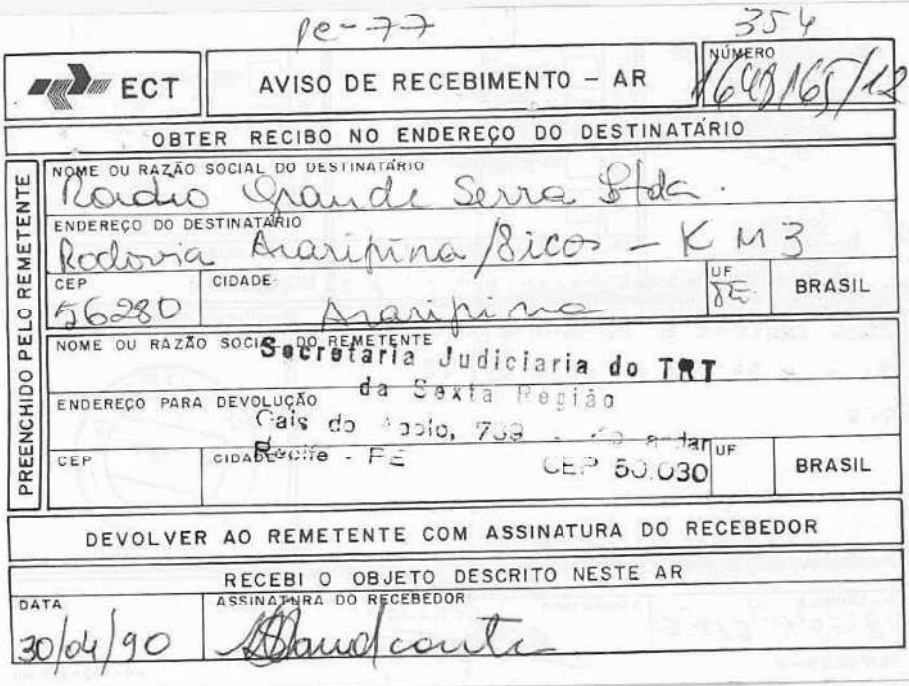 pe-77 354
ECT AVISO DE RECEBIMENTO - AR NÚMERO
OBTER RECIBO NO ENDEREÇO DO DESTINATÁRIO
PREENCHIDO PELO REMETENTE
NOME OU RAZÃO SOCIAL DO DESTINATÁRIO
Radio Grande Serra Ltda.
ENDEREÇO DO DESTINATÁRIO
Rodovia Araripina / - KM3
CEP CIDADE UF
56280 Araripina PE. BRASIL
NOME OU RAZÃO SOCIAL DO REMETENTE
Secretaria Judiciaria do TRT
da Sexta Região
ENDEREÇO PARA DEVOLUÇÃO
Cais do Apolo, 739 - andar
CEP CIDADE UF
Recife - PE CEP 50.030 BRASIL
DEVOLVER AO REMETENTE COM ASSINATURA DO RECEBEDOR
RECEBI O OBJETO DESCRITO NESTE AR
DATA ASSINATURA DO RECEBEDOR
30/04/90